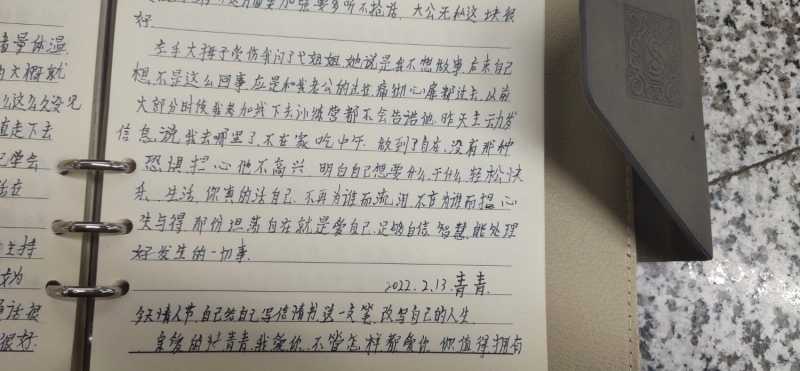 大公无私这块很
好.
左手大拇子受伤我问了弋姐姐,她说是我不想做事,后来自己
想,不是这么回事,应是和我老公的过往痛彻心扉都过去,以前
大部分时候我参加线下去训练营都不会告诉他,昨天主动发
信息说我去哪里了,不在家吃中午.做到了自在,没有那种
恐惧担心他不高兴.明白自己想要什么,干什么,轻松快
乐、生活,你真的活自己,不再为谁而流泪,不再为谁而担心
失与得,那份坦荡自在就是爱自己,足够自信,智慧,能处理
好发生的一切事.
2022.2.13.青青.
今天情人节,自己给自己写信请
改写自己的人生.
亲爱的 青青,我爱你,不管怎样都爱你,你值得拥有
音量体温
大概就
么这么多
直走下去
学会
活在
主持
成为
很好.